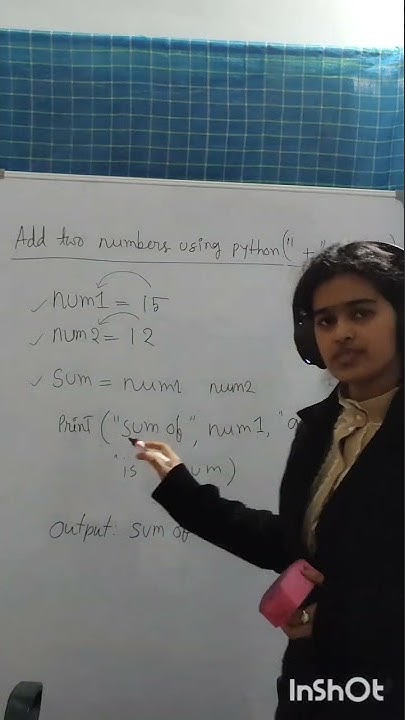 Add two numbers using python("+"
✓ num1 = 15
✓ num2 = 12
✓ Sum = num1 num2
Print ("sum of", num1, "a
"is um)
Output: sum of
InShOt